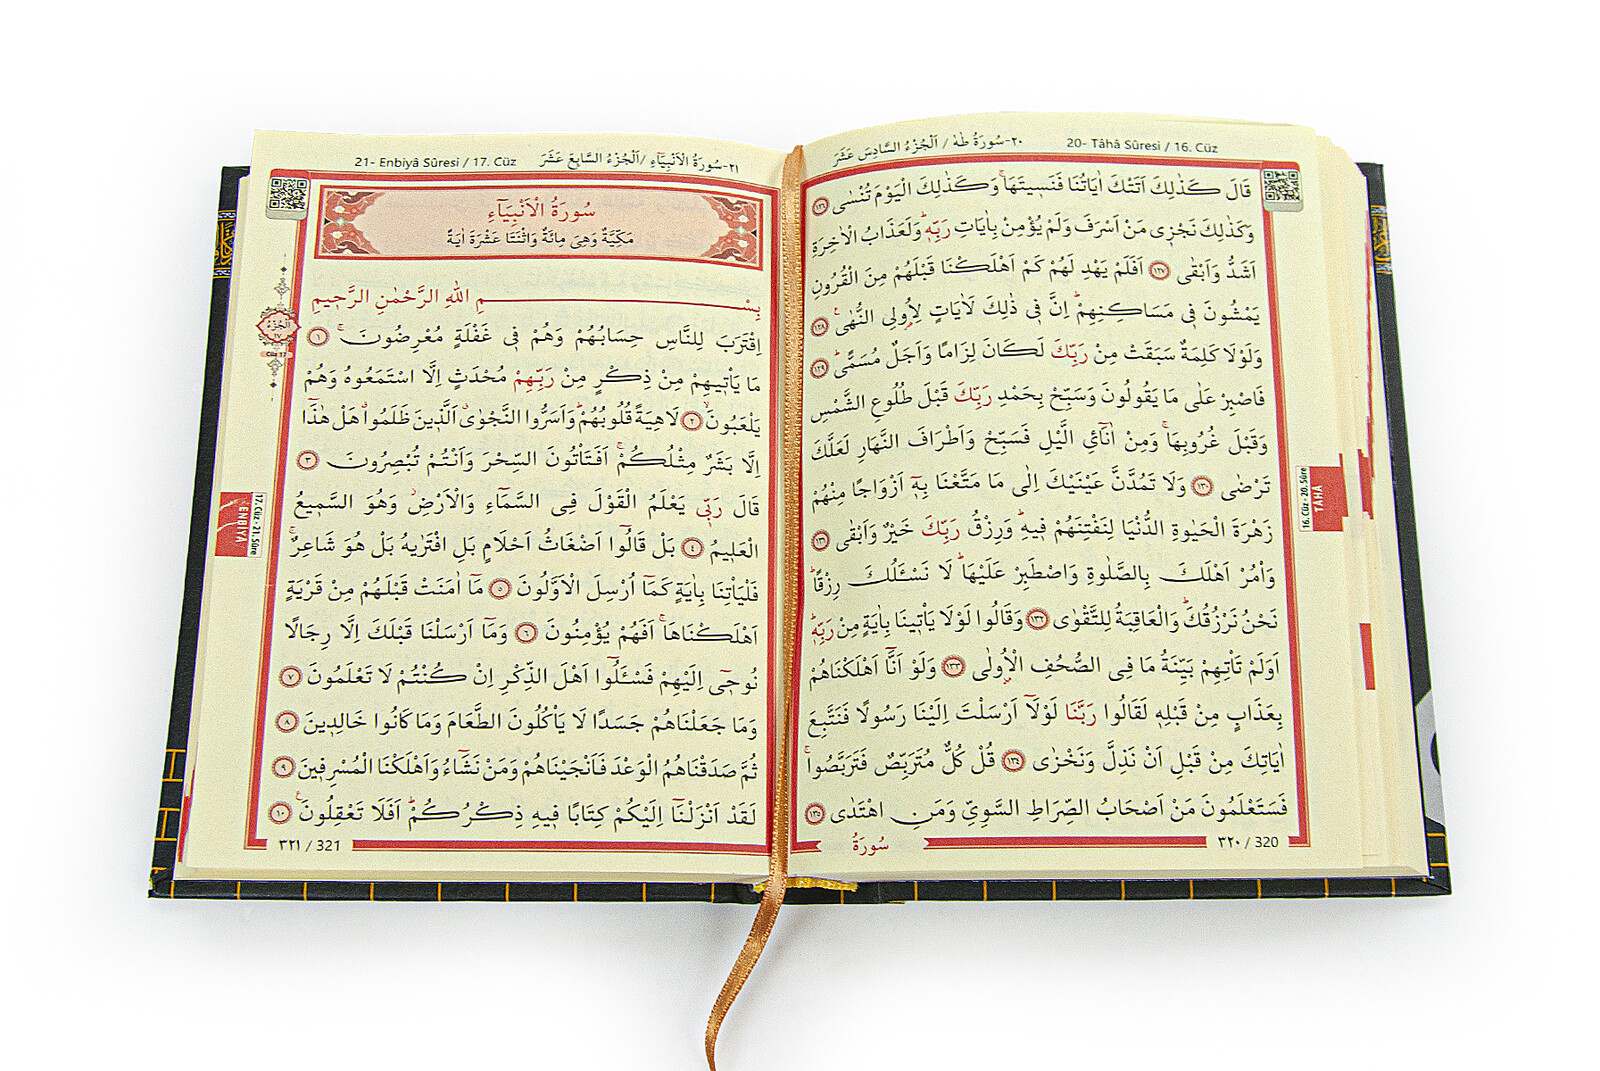 ٢٠-سُورَةُ طٰهٰ / اَلْجُزْءُ السَّادِسَ عَشَرَ 20- Tâhâ Sûresi / 16. Cüz
قَالَ كَذٰلِكَ اَتَتْكَ اٰيَاتُنَا فَنَسِيتَهَاۚ وَكَذٰلِكَ الْيَوْمَ تُنْسٰى ﴿١٢٦﴾
وَكَذٰلِكَ نَجْزِى مَنْ اَسْرَفَ وَلَمْ يُؤْمِنْ بِاٰيَاتِ رَبِّهٖۜ وَلَعَذَابُ الْاٰخِرَةِ
اَشَدُّ وَاَبْقٰى ﴿١٢٧﴾ اَفَلَمْ يَهْدِ لَهُمْ كَمْ اَهْلَكْنَا قَبْلَهُمْ مِنَ الْقُرُونِ
يَمْشُونَ فِى مَسَاكِنِهِمْۜ اِنَّ فِى ذٰلِكَ لَاٰيَاتٍ لِاُو۬لِى النُّهٰىۚ ﴿١٢٨﴾
وَلَوْلَا كَلِمَةٌ سَبَقَتْ مِنْ رَبِّكَ لَكَانَ لِزَامًا وَاَجَلٌ مُسَمًّىۜ ﴿١٢٩﴾
فَاصْبِرْ عَلٰى مَا يَقُولُونَ وَسَبِّحْ بِحَمْدِ رَبِّكَ قَبْلَ طُلُوعِ الشَّمْسِ
وَقَبْلَ غُرُوبِهَاۚ وَمِنْ اٰنَآئِ الَّيْلِ فَسَبِّحْ وَاَطْرَافَ النَّهَارِ لَعَلَّكَ
تَرْضٰى ﴿١٣٠﴾ وَلَا تَمُدَّنَّ عَيْنَيْكَ اِلٰى مَا مَتَّعْنَا بِهٖٓ اَزْوَاجًا مِنْهُمْ
زَهْرَةَ الْحَيٰوةِ الدُّنْيَا لِنَفْتِنَهُمْ فِيهِۜ وَرِزْقُ رَبِّكَ خَيْرٌ وَاَبْقٰى ﴿١٣١﴾
وَأْمُرْ اَهْلَكَ بِالصَّلٰوةِ وَاصْطَبِرْ عَلَيْهَاۜ لَا نَسْـَٔلُكَ رِزْقًاۜ
نَحْنُ نَرْزُقُكَۜ وَالْعَاقِبَةُ لِلتَّقْوٰى ﴿١٣٢﴾ وَقَالُوا لَوْلَا يَأْتِينَا بِاٰيَةٍ مِنْ رَبِّهٖۜ
اَوَلَمْ تَأْتِهِمْ بَيِّنَةُ مَا فِى الصُّحُفِ الْاُو۫لٰى ﴿١٣٣﴾ وَلَوْ اَنَّٓا اَهْلَكْنَاهُمْ
بِعَذَابٍ مِنْ قَبْلِهٖ لَقَالُوا رَبَّنَا لَوْلَٓا اَرْسَلْتَ اِلَيْنَا رَسُولًا فَنَتَّبِعَ
اٰيَاتِكَ مِنْ قَبْلِ اَنْ نَذِلَّ وَنَخْزٰى ﴿١٣٤﴾ قُلْ كُلٌّ مُتَرَبِّصٌ فَتَرَبَّصُواۚ
فَسَتَعْلَمُونَ مَنْ اَصْحَابُ الصِّرَاطِ السَّوِيِّ وَمَنِ اهْتَدٰى ﴿١٣٥﴾
سُورَةُ
٣٢٠ / 320
16. Cüz - 20. Sûre
TÂHÂ
٢١-سُورَةُ الْاَنْبِيَٓاءِ / اَلْجُزْءُ السَّابِعَ عَشَرَ 21- Enbiyâ Sûresi / 17. Cüz
سُورَةُ الْاَنْبِيَٓاءِ
مَكِّيَّةٌ وَهِىَ مِائَةٌ وَاثْنَتَا عَشْرَةَ اٰيَةً
بِسْمِ اللّٰهِ الرَّحْمٰنِ الرَّحِيمِ
اِقْتَرَبَ لِلنَّاسِ حِسَابُهُمْ وَهُمْ فِى غَفْلَةٍ مُعْرِضُونَۚ ﴿١﴾
مَا يَأْتِيهِمْ مِنْ ذِكْرٍ مِنْ رَبِّهِمْ مُحْدَثٍ اِلَّا اسْتَمَعُوهُ وَهُمْ
يَلْعَبُونَۙ ﴿٢﴾ لَاهِيَةً قُلُوبُهُمْۜ وَاَسَرُّوا النَّجْوٰىۗ اَلَّذِينَ ظَلَمُواۗ هَلْ هٰذَٓا
اِلَّا بَشَرٌ مِثْلُكُمْۚ اَفَتَأْتُونَ السِّحْرَ وَاَنْتُمْ تُبْصِرُونَ ﴿٣﴾
قَالَ رَبِّى يَعْلَمُ الْقَوْلَ فِى السَّمَٓاءِ وَالْاَرْضِۘ وَهُوَ السَّمِيعُ
الْعَلِيمُ ﴿٤﴾ بَلْ قَالُٓوا اَضْغَاثُ اَحْلَامٍ بَلِ افْتَرٰيهُ بَلْ هُوَ شَاعِرٌۚ
فَلْيَأْتِنَا بِاٰيَةٍ كَمَٓا اُرْسِلَ الْاَوَّلُونَ ﴿٥﴾ مَٓا اٰمَنَتْ قَبْلَهُمْ مِنْ قَرْيَةٍ
اَهْلَكْنَاهَاۚ اَفَهُمْ يُؤْمِنُونَ ﴿٦﴾ وَمَٓا اَرْسَلْنَا قَبْلَكَ اِلَّا رِجَالًا
نُوحِٓى اِلَيْهِمْ فَسْـَٔلُٓوا اَهْلَ الذِّكْرِ اِنْ كُنْتُمْ لَا تَعْلَمُونَ ﴿٧﴾
وَمَا جَعَلْنَاهُمْ جَسَدًا لَا يَأْكُلُونَ الطَّعَامَ وَمَا كَانُوا خَالِدِينَ ﴿٨﴾
ثُمَّ صَدَقْنَاهُمُ الْوَعْدَ فَاَنْجَيْنَاهُمْ وَمَنْ نَشَٓاءُ وَاَهْلَكْنَا الْمُسْرِفِينَ ﴿٩﴾
لَقَدْ اَنْزَلْنَٓا اِلَيْكُمْ كِتَابًا فِيهِ ذِكْرُكُمْۜ اَفَلَا تَعْقِلُونَۚ ﴿١٠﴾
٣٢١ / 321
اَلْجُزْءُ
١٧
Cüz 17
17. Cüz - 21. Sûre
ENBİYÂ